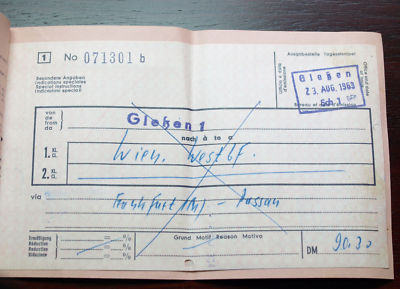 1 No 071301 b
Besondere Angaben
Indications spéciales
Special instructions
Indicazioni speciali
Ausgabestelle Tagesstempel
Bureau et date d'émission
Office and date of issue
Gießen
23. AUG. 1963
Sch.
von
de
from
da
Gießen 1
nach à to a
1. Kl. Cl.
2. Kl. Cl.
Wien Westbf.
via
Frankfurt (M) - Passau
Ermäßigung
Réduction
Reduction
Riduzione
= %
= %
Grund Motif Reason Motivo
DM 90.30